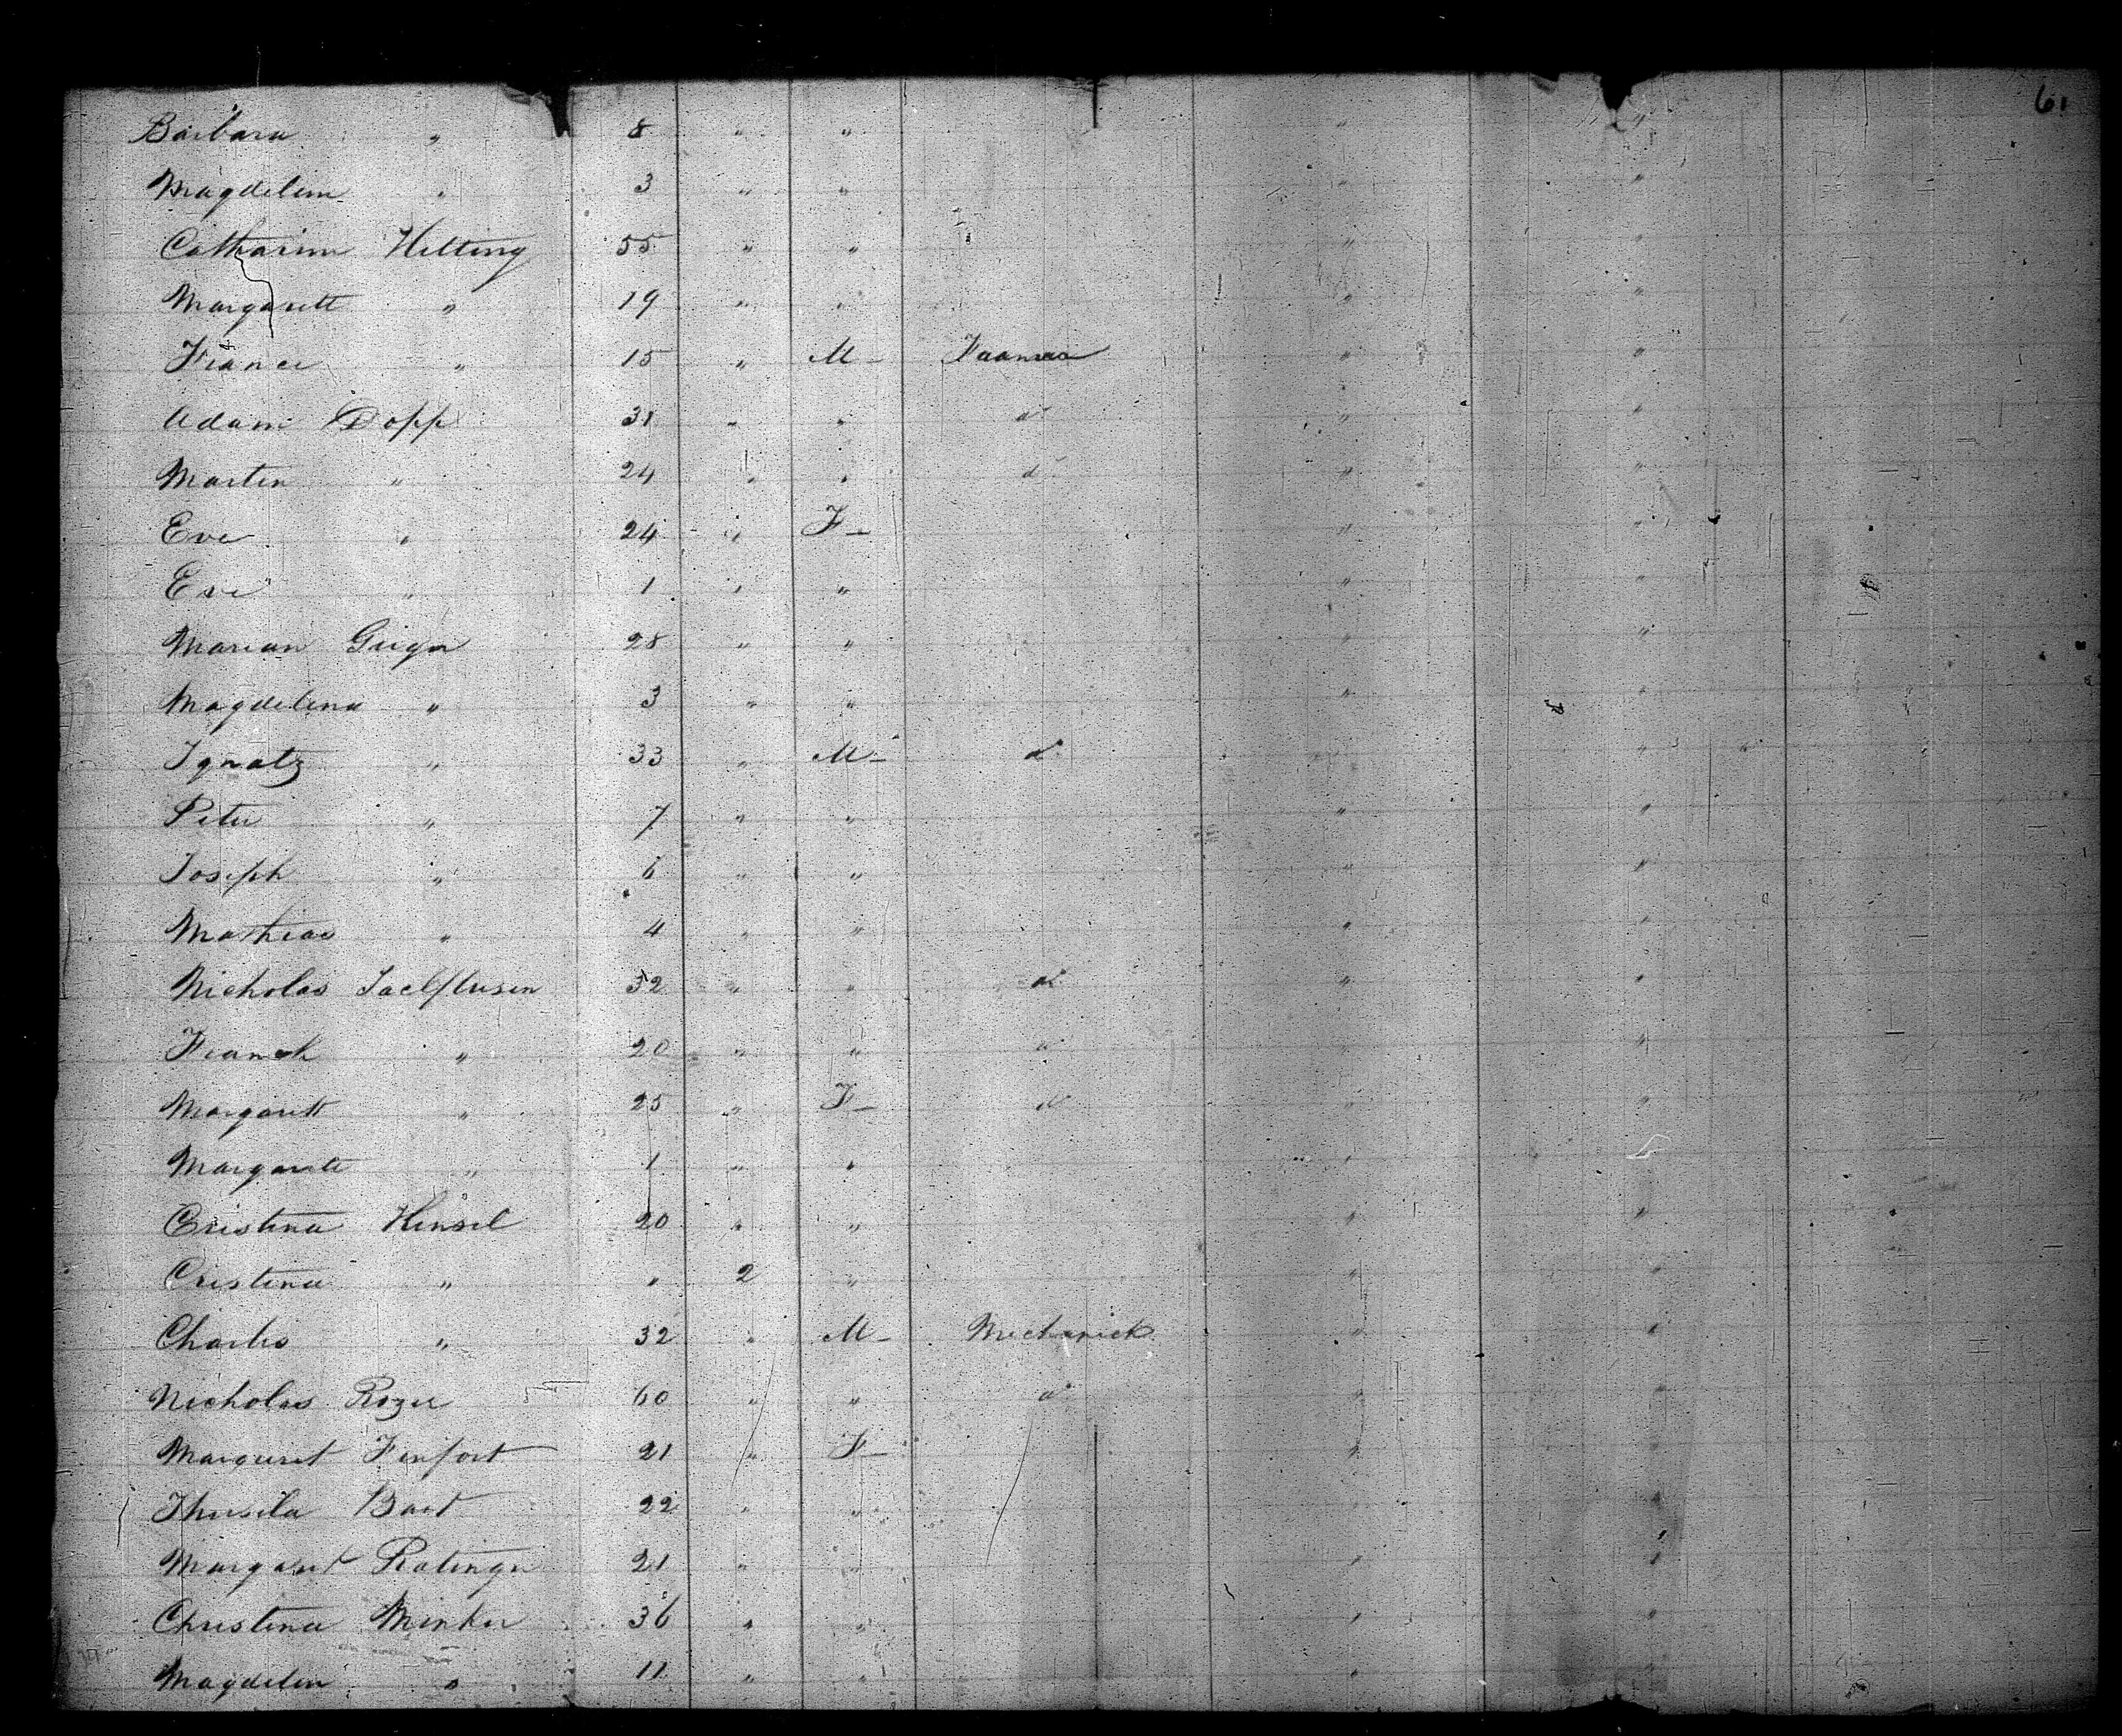 61
Barbara " 8 " "
Magdelina " 3 " " " "
Catharine Hilting 55 " " " "
Margarett " 19 " " " "
France " 15 " M - Faarmer " "
Adam Dopp 31 " " do " "
Martin " 24 " " do " "
Eve " 24 " F - " "
Eve " 1 " " " "
Marian Geiger 28 " " " "
Magdelena " 3 " " " "
Ignatz " 33 " M - do " "
Peter " 7 " " " "
Joseph " 6 " " " "
Mathias " 4 " " " "
Nicholas 32 " " do " "
Franck " 20 " " do " "
Margarett " 25 " F - do " "
Margarett " 1 " " " "
Cristina Hensel 20 " " " "
Cristina " " 2 " " "
Charles " 32 " M - Mechanick " "
Nicholas Rozer 60 " " do " "
Margaret Finfort 21 " F - " "
Bart 22 " " "
Margaret Ratinger 21 " " " "
Christina Minker 36 " " " "
Magdelen " 11 " " " "